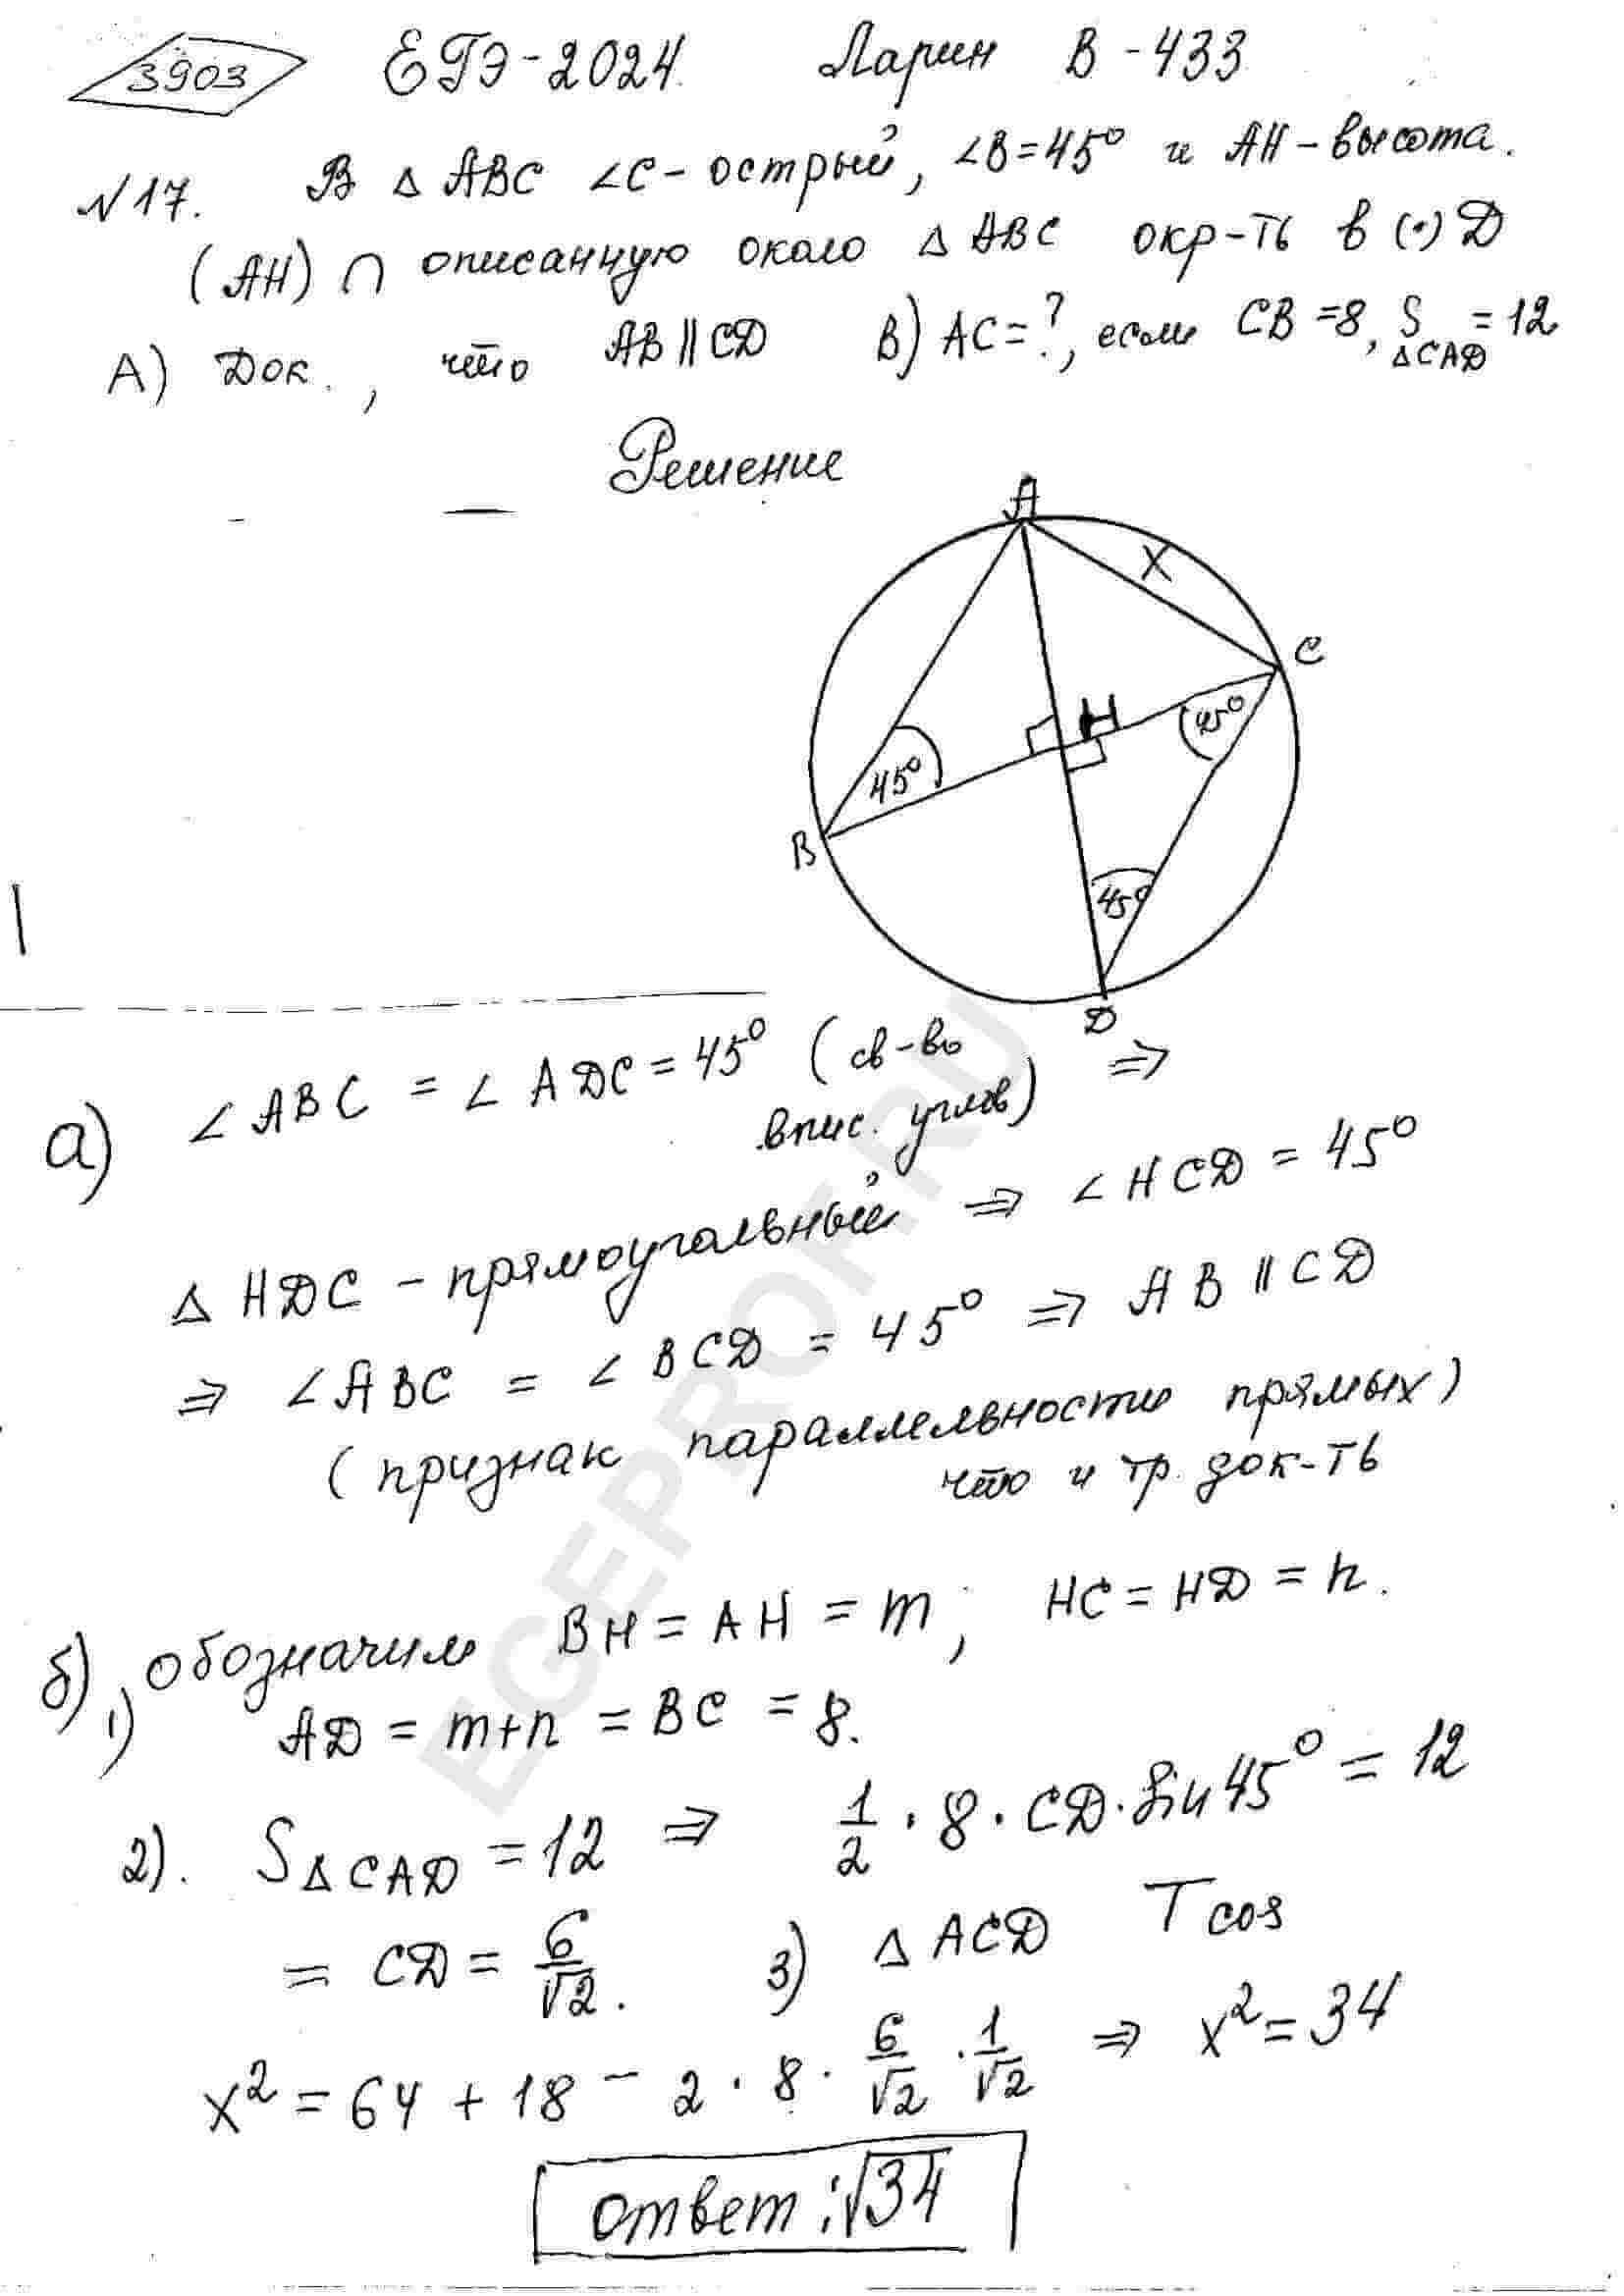 3903 ЕГЭ-2024. Ларин В-433
№17. В △ ABC ∠C - острый, ∠B=45° и AH - высота.
(AH) ∩ описанную около △ ABC окр-ть в (·) D
А) Док., что AB || CD В) AC=?, если CB=8, S△CAD=12
Решение
A
X
C
H
45°
45°
B
45°
D
а) ∠ABC = ∠ADC = 45° (св-во
впис. углов) ⇒
△ HDC - прямоугольный ⇒ ∠HCD = 45°
⇒ ∠ABC = ∠BCD = 45° ⇒ AB || CD
(признак параллельности прямых)
что и тр. док-ть
б) 1) обозначим BH = AH = m; HC = HD = n.
AD = m+n = BC = 8.
2). S△CAD = 12 ⇒ 1/2 · 8 · CD · sin 45° = 12
= CD = 6/√2. 3) △ ACD Tcos
x² = 64 + 18 - 2 · 8 · 6/√2 · 1/√2 ⇒ x² = 34
ответ: √34
EGEPROF.RU